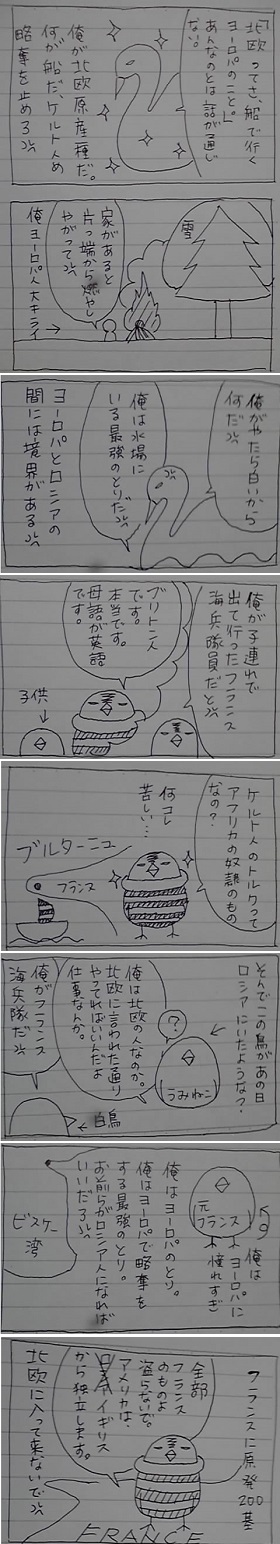 「北欧ってさ、船で行く
ヨーロパのこと。」
あんなのとは話が通じ
ない。
俺が北欧原産種だ。
何が船だ、ケルト人め
略奪を止めろ
雪
家があると
片っ端から燃やし
やがって
俺ヨーロパ人大キライ
俺がやたら白いから
何だ
俺は水場に
いる最強のとりだ
ヨーロパとロシアの
間には境界がある
俺が子連れで
出て行ったフランス
海兵隊員だと
ブリトン人
です。
本当です。
母語が英語
です。
子供
ケルト人のトルクって
アフリカの奴隷のもの
なの？
何コレ
苦しい…
ブルターニュ
フランス
そんでこの鳥があの日
ロシアにいたような？
うみねこ
？
俺は北欧の人なのか。
北欧に言われた通り
やってればいいんだよ
仕事なんか。
俺がフランス
海兵隊だ
白鳥
元
フランス
俺は
ヨーロパに
憧れすぎ
俺はヨーロパのとり。
俺はヨーロパで略奪を
する最強のとり。
お前らがロシア人になれば
いいだろ
ビスケー
湾
フランスに原発200基
全部
フランス
のものよ
盗らないで。
アメリカは、
イギリス
から独立します。
北欧に入って来ないで
FRANCE